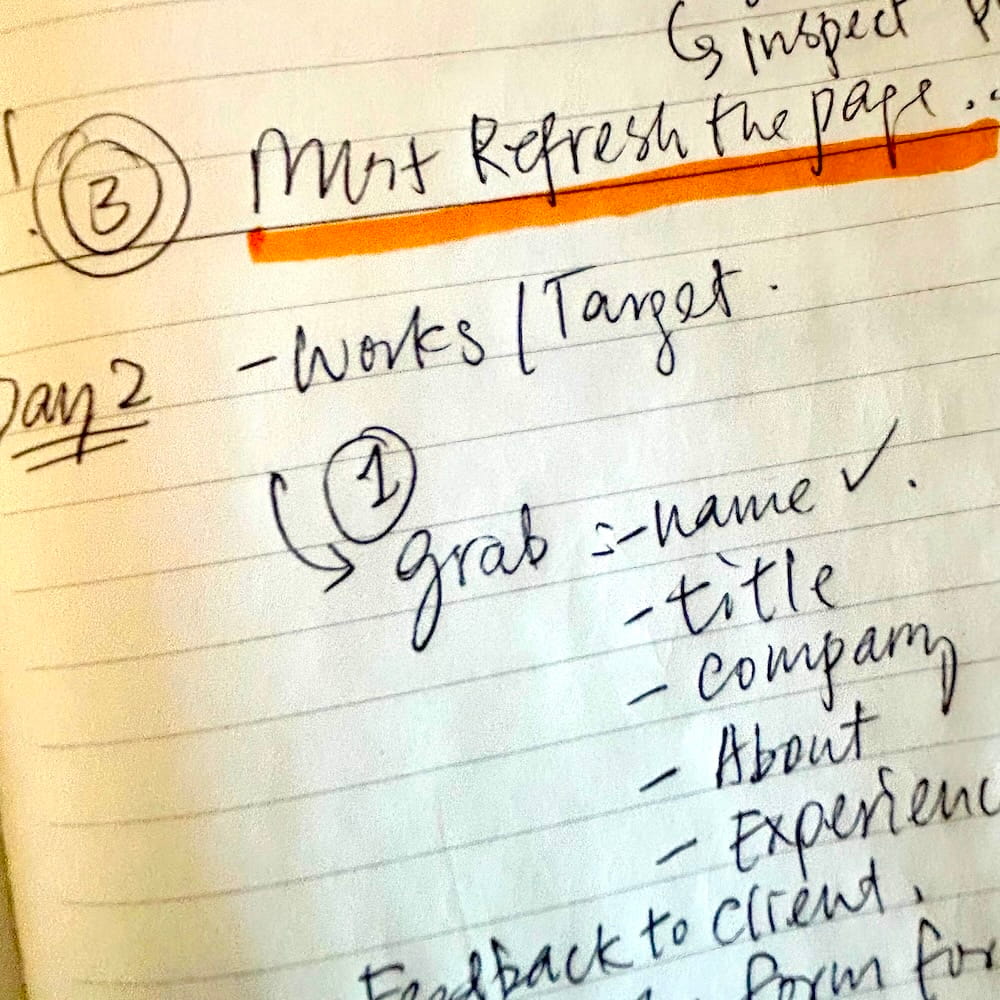 ↳ inspect
③ Must Refresh the page...
Day 2 - Works / Target.
① grab :- name ✓.
- title
- company
- About
- Experienc
Feedback to client.
form for